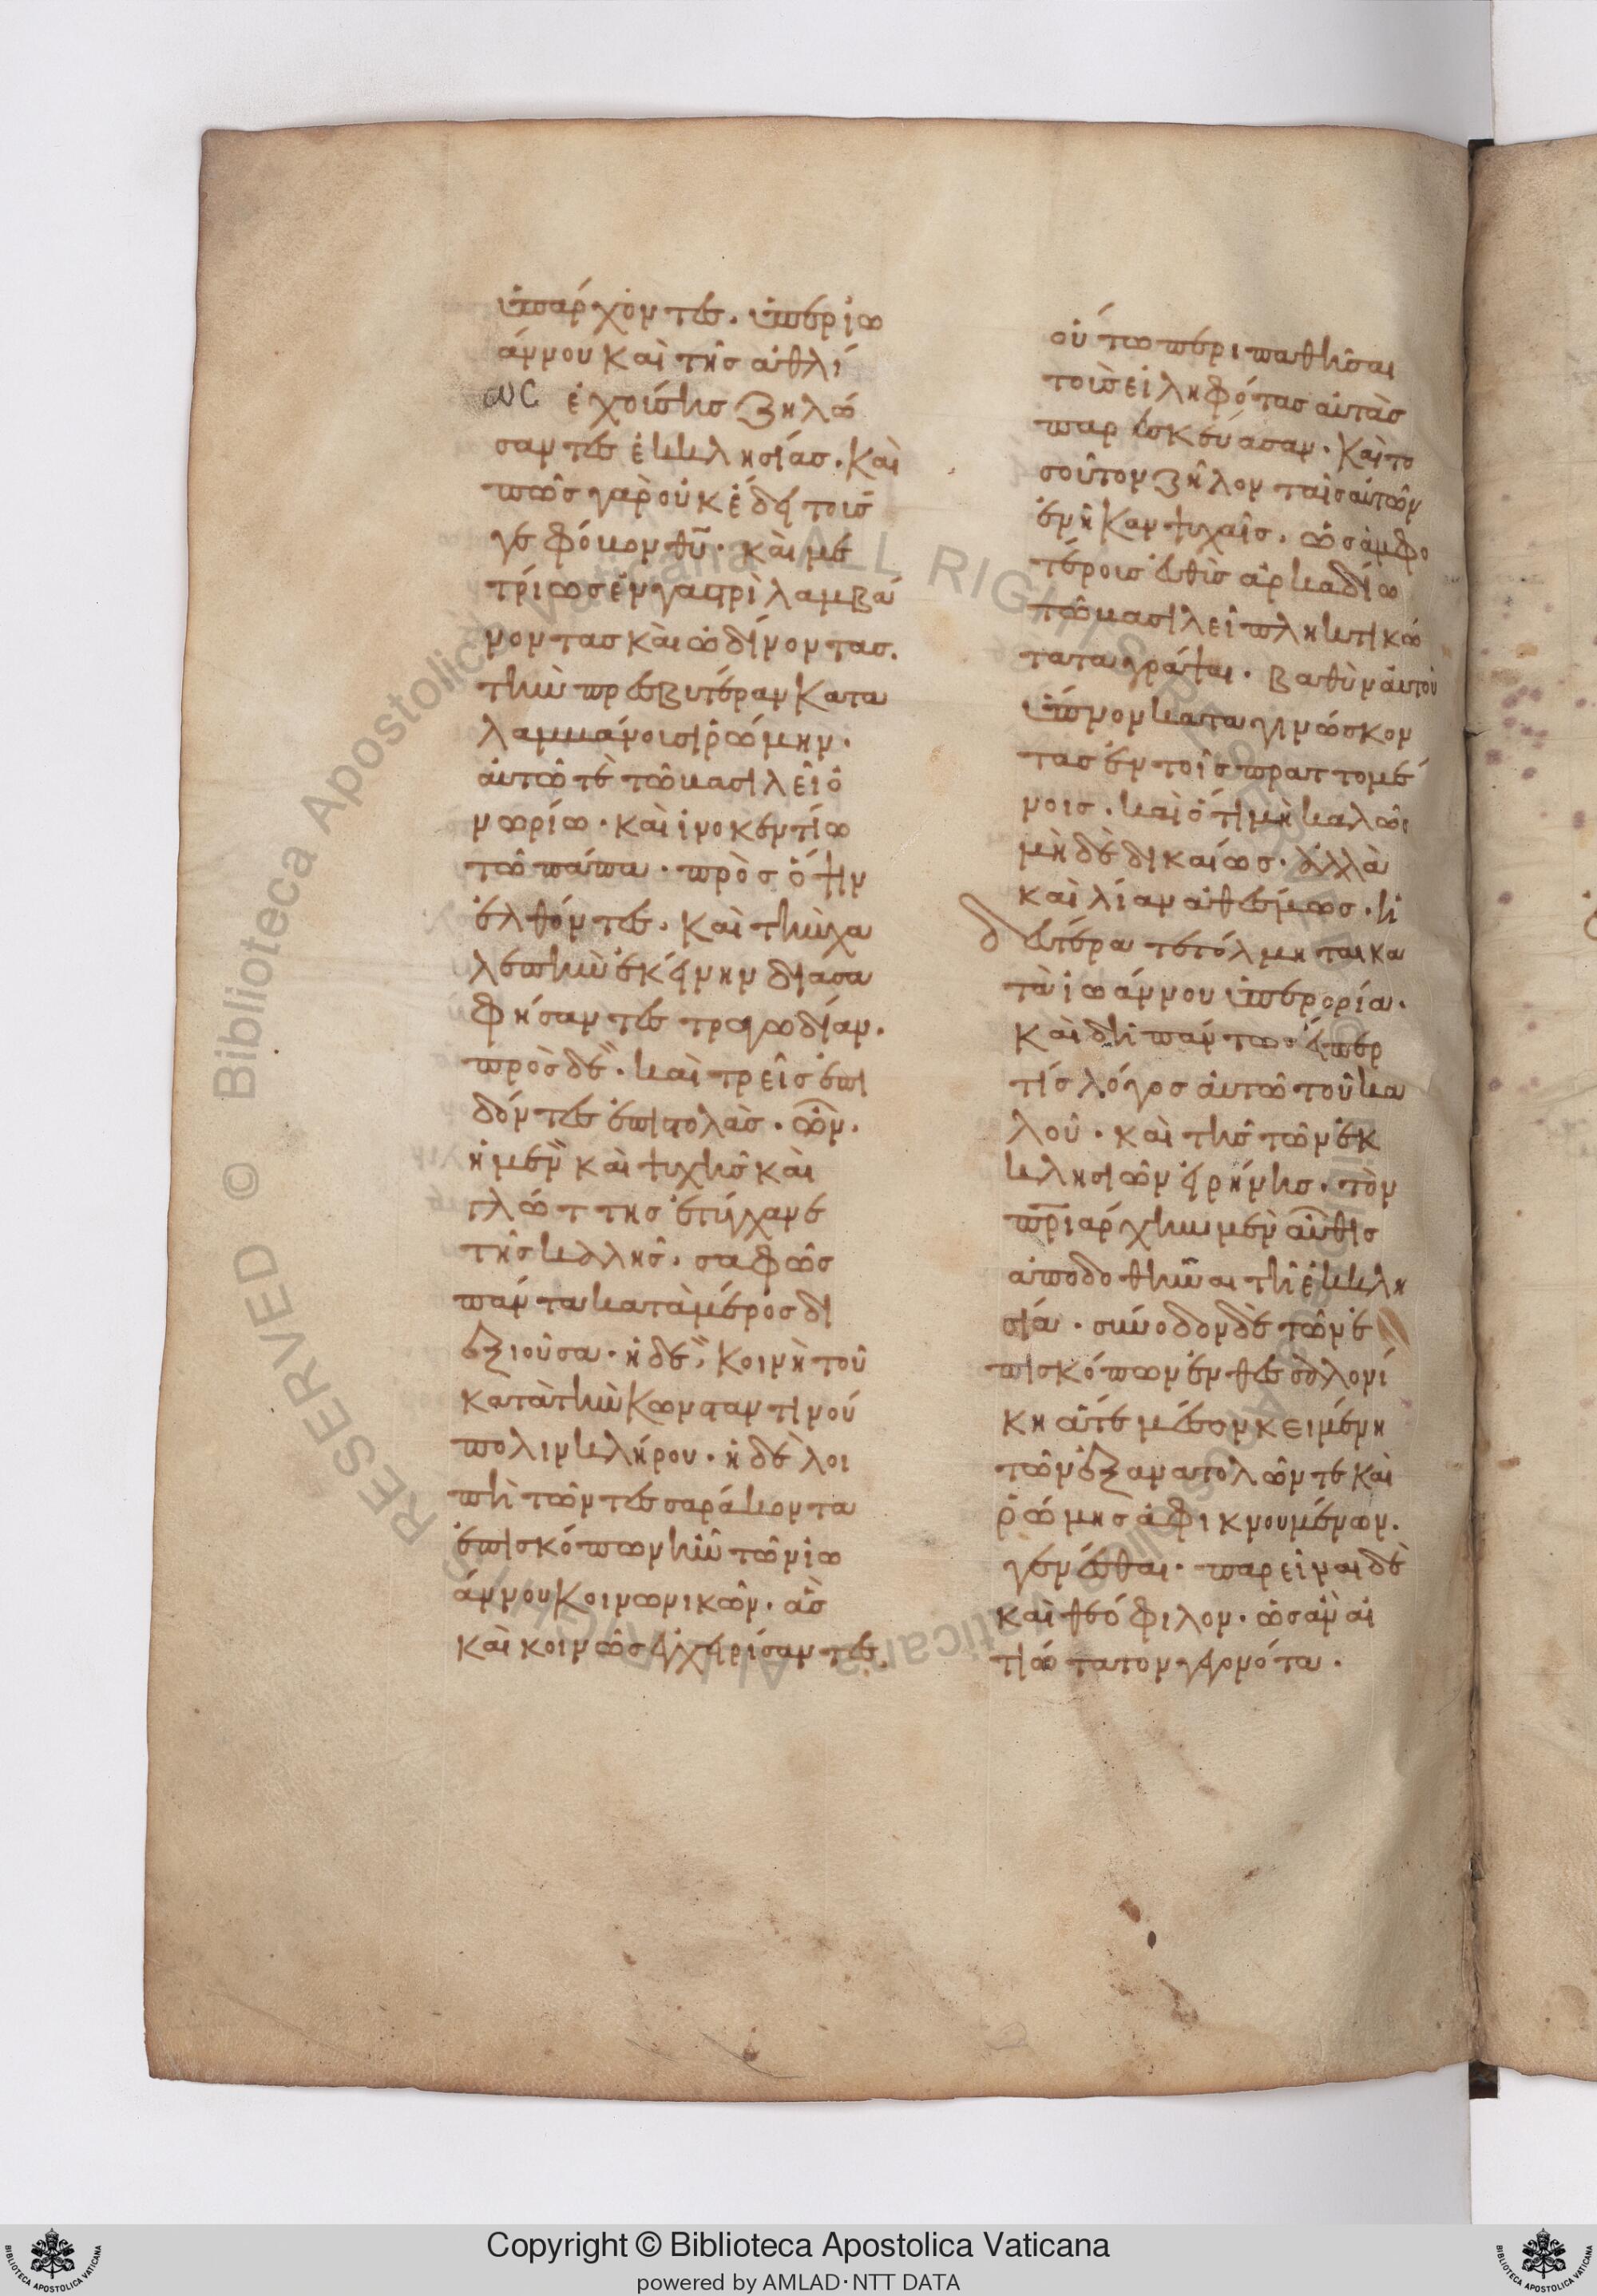 ὑπάρχοντες. ὑπὲρ ἰω
άννου καὶ τῆς ἀθλί
ως ἐχούσης ζηλώ
σαντες ἐκκλησίας. καὶ
πῶς γὰρ οὐκ ἔδει τοὺς
γε φόβον θῦ. καὶ με
τρίως ἐν γαστρὶ λαμβά
νοντας καὶ ὠδίνοντας.
τὴν πρεσβυτέραν κατα
λαμβάνουσι ῥώμην.
αὐτῶ τὲ τῶ βασιλεῖ ὁ
νωρίω. καὶ ἰνοκεντίω
τῶ πάπα. πρὸς ὅ τι ἦν
ἐλθόντες. καὶ τὴν χα
λεπὴν ἐκείνην διασα
φήσαντες τραγωδίαν.
πρὸς δὲ. καὶ τρεῖς ἐπι
δόντες ἐπιστολὰς. ὧν.
ἡ μὲν καὶ ψυχῆς καὶ
γλώττης ἐτύγχανε
τῆς καλῆς. σαφῶς
πάντα κατὰ μέρος δι
εξιοῦσα. ἡ δὲ, κοινὴ τοῦ
κατὰ τὴν κωνσταντίνου
πολιν κλήρου. ἡ δὲ λοι
πὴ τῶν τεσσαράκοντα
ἐπισκόπων ἦν τῶν ἰω
άννου κοινωνικῶν. ἃς
καὶ κοινῶς ἐγχειρίσαντες
οὕτω περιπαθῆσαι
τοὺς εἰληφότας αὐτὰς
παρεσκεύασαν. καὶ το
σοῦτον ζῆλον ταῖς αὐτῶν
ἐνῆκαν ψυχαῖς. ὡς ἀμφο
τέροις εὐθὺς ἀρκαδίω
τῶ βασιλεῖ πληκτικώ
τατα γράψαι. βαθὺν αὐτοῦ
ὕπνον καταγινώσκον
τας ἐν τοῖς πραττομέ
νοις. καὶ ὅτι μὴ καλῶς
μὴ δὲ δικαίως. ἀλλὰ
καὶ λίαν ἀθέσμως. ἡ
δευτέρα τετόλμηται κα
τὰ ἰωάννου ὑπερορία.
καὶ δὴ πάντως εἴπερ
τίς λόγος αὐτῶ τοῦ κα
λοῦ. καὶ τῆς τῶν ἐκ
κλησιῶν εἰρήνης. τὸν
πριάρχην μὲν αὖθις
ἀποδοθῆναι τῆ ἐκκλη
σία. σύνοδον δὲ τῶν ἐ
πισκόπων ἐν θεσσαλονί
κη ἅτε μέσον κειμένη
τῶν ἐξ ἀνατολῶν τε καὶ
ῥώμης ἀφικνουμένων.
γενέσθαι. παρεῖναι δὲ
καὶ θεόφιλον. ὡς ἂν αἰ
τιώτατον γεγονότα.
Copyright © Biblioteca Apostolica Vaticana
powered by AMLAD·NTT DATA